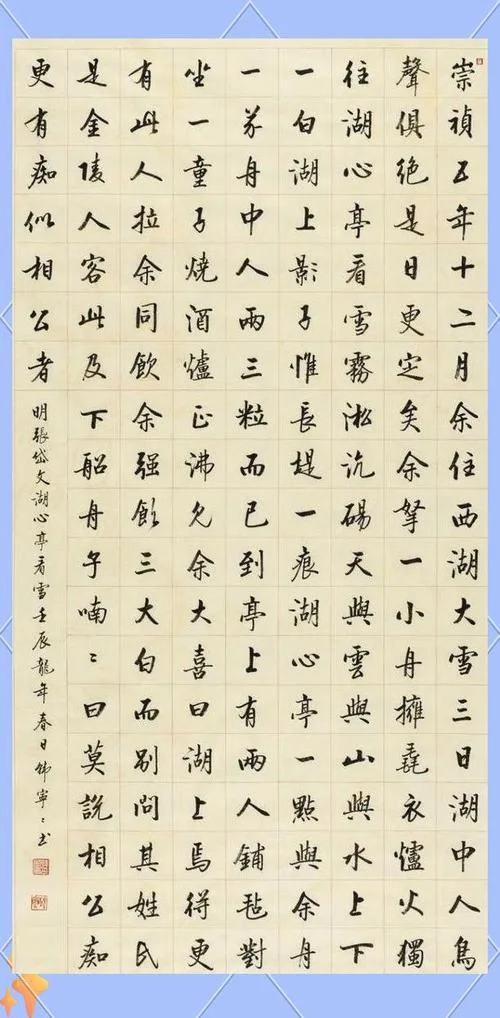 崇禎五年十二月余住西湖大雪三日湖中人鳥
聲俱絕是日更定矣余拏一小舟擁毳衣爐火獨
往湖心亭看雪霧淞沆碭天與雲與山與水上下
一白湖上影子惟長堤一痕湖心亭一點與余舟
一芥舟中人兩三粒而已到亭上有兩人鋪氈對
坐一童子燒酒爐正沸見余大喜曰湖上焉得更
有此人拉余同飲余強飲三大白而別問其姓氏
是金陵人客此及下船舟子喃〻曰莫說相公痴
更有痴似相公者
明張岱文湖心亭看雪壬辰龍年春日韓寧〻書